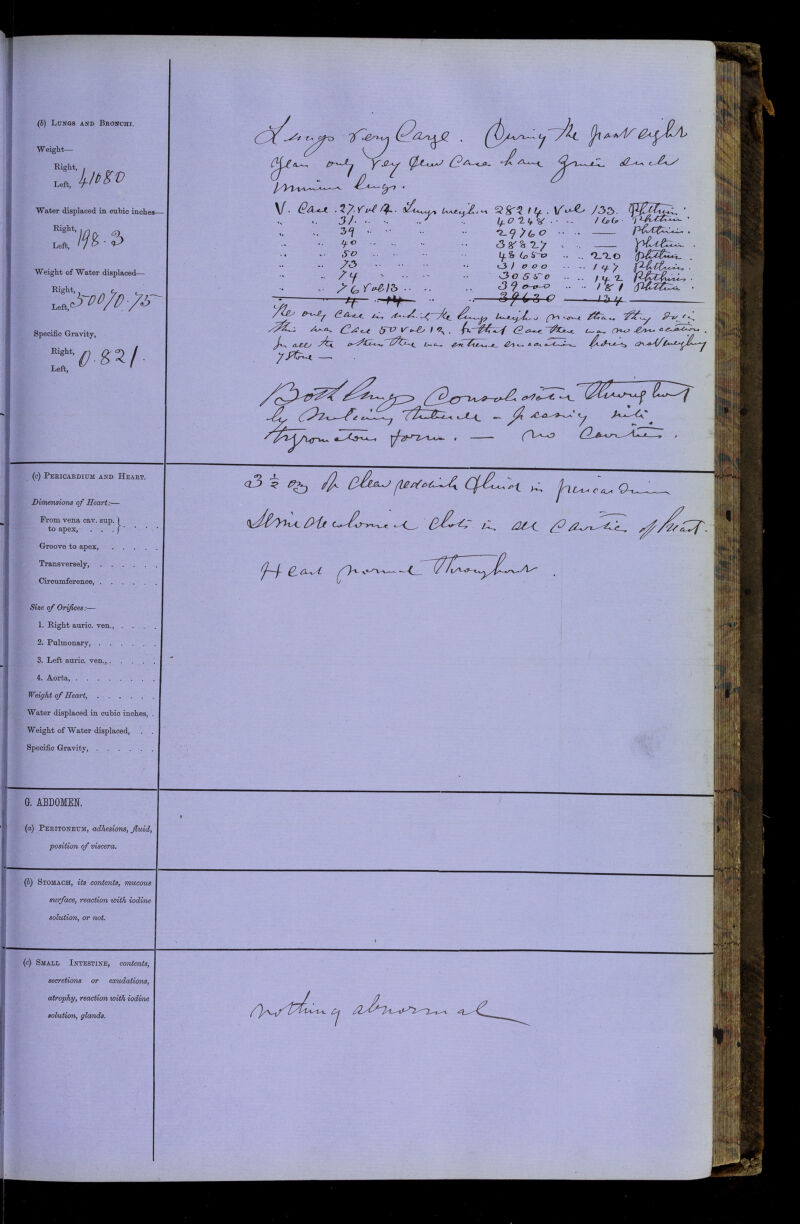 (b) LUNGS AND BRONCHI.
Weight—
Right,
Left,
41080
Water displaced in cubic inches—
Right,
Left,
198.3
Weight of Water displaced—
Right,
Left,
50070.75
Specific Gravity,
Right,
Left,
0.821.
Lungs very large. During the past eight
years only very few cases have given such
lungs.
V. Case. 27. Vol 12. Lungs weigh 28214. Vol 133. Phthisis.
" " 31. " " " " 40248 " " 166. Phthisis.
" " 39 " " " " 29760 " " — Phthisis.
" " 40 " " " " 38827 " — Phthisis.
" " 50 " " " " 48650 " " 220 Phthisis.
" " 73 " " 31000 " " 147 Phthisis.
" " 74 " " 30550 " " 142 Phthisis.
" " 76 Vol 13 " " 39000 " " 181 Phthisis.
39630 134
The only case in which the lungs weighed more than they do in
this was Case 50 Vol 12. In that case there was no emaciation.
In all the others there was extreme emaciation bodies not weighing
7 Stone —
Both lungs consolidated throughout
by miliary tubercle - passing into
forms. — no cavities.
(c) PERICARDIUM AND HEART.
Dimensions of Heart:—
From vena cav. sup. to apex, . . .
Groove to apex, . . . . . .
Transversely, . . . . . .
Circumference, . . . . . .
Size of Orifices:—
1. Right auric. ven., . . . .
2. Pulmonary, . . . . . .
3. Left auric. ven., . . . . .
4. Aorta, . . . . . . . .
Weight of Heart, . . . . . .
Water displaced in cubic inches, .
Weight of Water displaced, . .
Specific Gravity, . . . . . .
3 1/2 oz of clear reddish fluid in pericardium
Semi decolorised clots in all cavities of heart.
Heart normal throughout.
G. ABDOMEN.
(a) PERITONEUM, adhesions, fluid,
position of viscera.
(b) STOMACH, its contents, mucous
surface, reaction with iodine
solution, or not.
(c) SMALL INTESTINE, contents,
secretions or exudations,
atrophy, reaction with iodine
solution, glands.
nothing abnormal